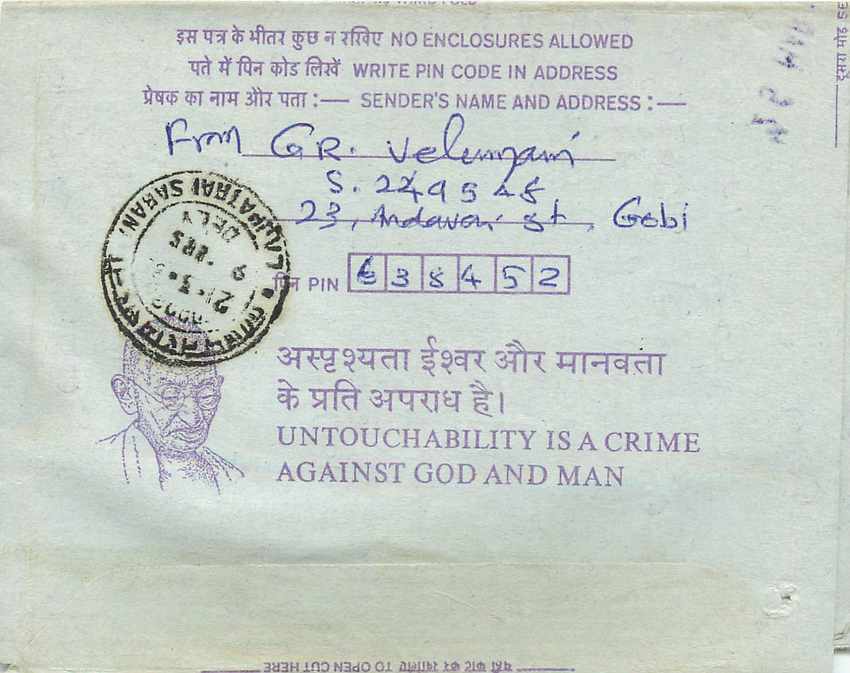 इस पत्र के भीतर कुछ न रखिए NO ENCLOSURES ALLOWED
पते में पिन कोड लिखें WRITE PIN CODE IN ADDRESS
प्रेषक का नाम और पता :— SENDER'S NAME AND ADDRESS :—
From GR. Velumani
S. 229548
23, Andavar st, Gobi
पिन PIN 638452
LAJPATRAI SARANI
DELY
9 HRS
21-3-
अस्पृश्यता ईश्वर और मानवता
के प्रति अपराध है।
UNTOUCHABILITY IS A CRIME
AGAINST GOD AND MAN
यहाँ काट कर खोलिए TO OPEN CUT HERE
दूसरा मोड़ SE